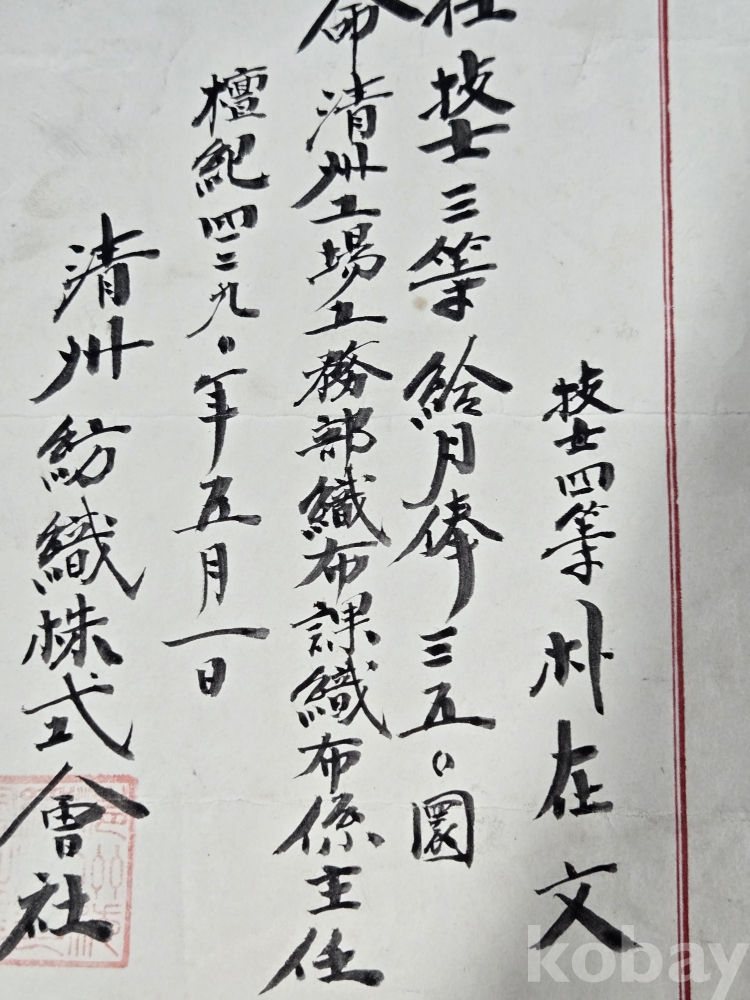 技士四等 朴在文
任技士三等 給月俸三五〇圜
命淸州工場工務部織布課織布係主任
檀紀四二九〇年五月一日
淸州紡織株式會社
kobay